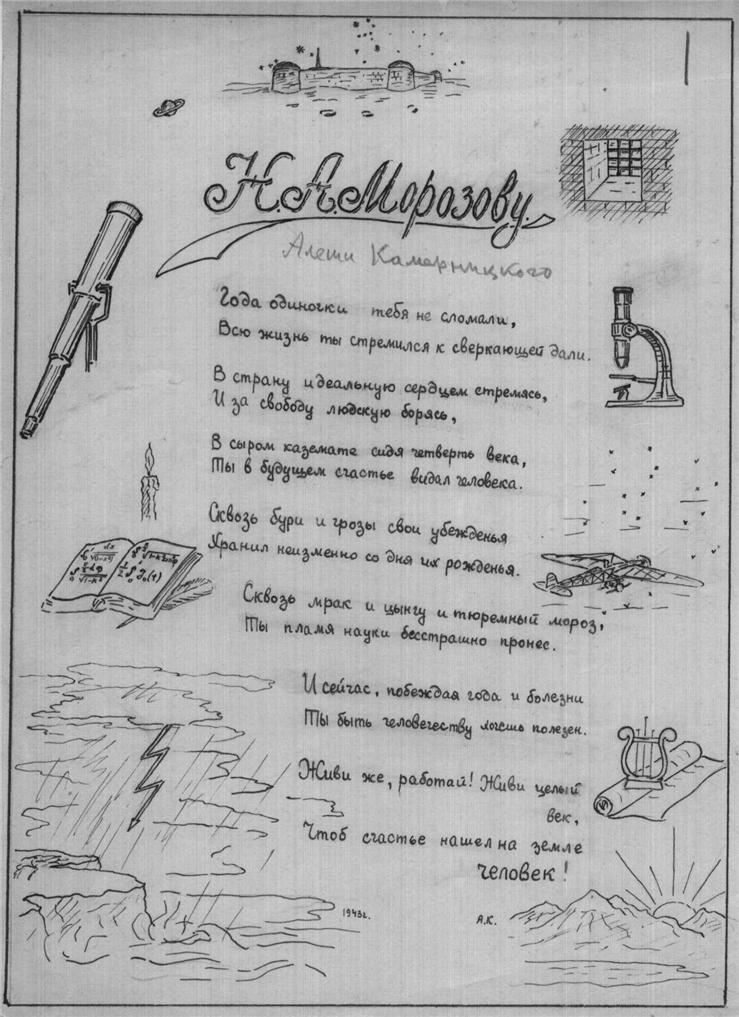 Н.А.Морозову.
Алеши Камерницкого
Года одиночки тебя не сломали,
Всю жизнь ты стремился к сверкающей дали.
В страну идеальную сердцем стремясь,
И за свободу людскую борясь,
В сыром каземате сидя четверть века,
Ты в будущем счастье видал человека.
Сквозь бури и грозы свои убежденья
Хранил неизменно со дня их рожденья.
Сквозь мрак и цынгу и тюремный мороз,
Ты пламя науки бесстрашно пронес.
И сейчас, побеждая года и болезни
Ты быть человечеству можешь полезен.
Живи же, работай! Живи целый
век,
Чтоб счастье нашел на земле
человек!
1943г.
А.К.